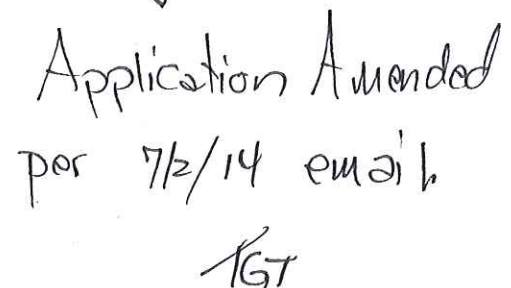 Application Amended
per 7/2/14 email.
TGT